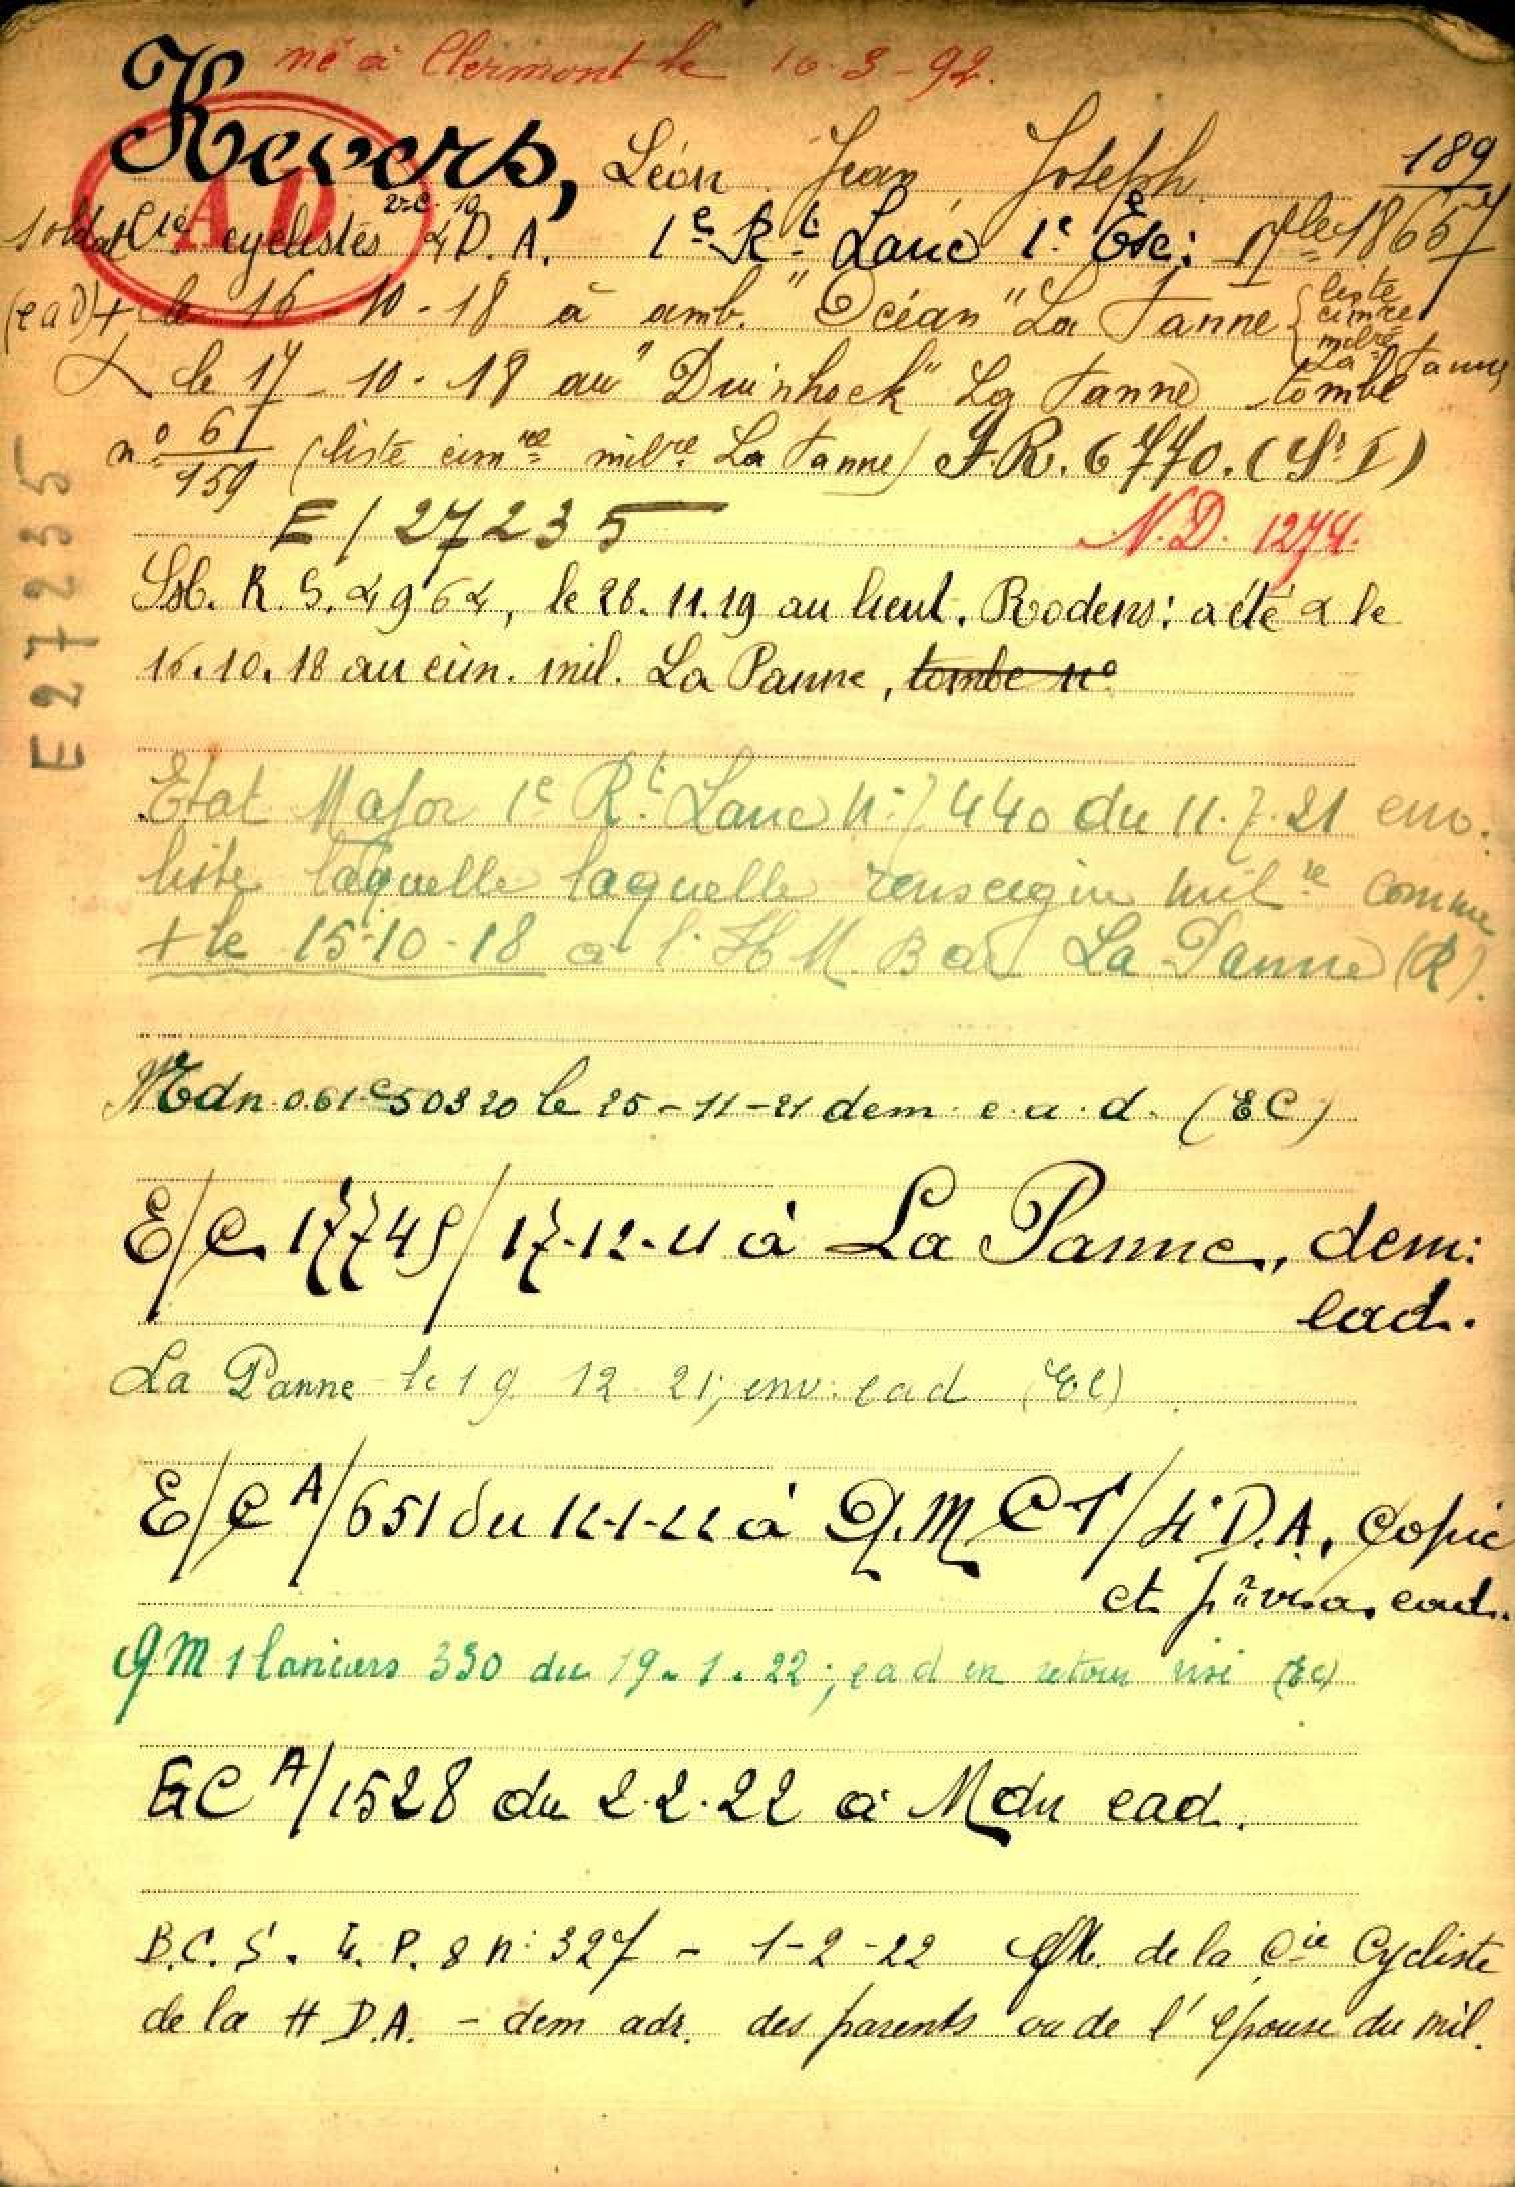 né à Clermont le 16-3-92.
Kevers, Léon Jean Joseph 189
A D
soldat Cie cyclistes 4 D. A. 1e Rt Lanc 1e Esc: Mle 18657
(ead) + le 16 10-18 à amb. "Océan" La Panne { liste cimre milre La Panne
le 17-10-18 au "Duinhoek" La Panne tombe
no 6/159 (liste cimre milre La Panne) F.R. 6770. (Sr I)
E / 27235 N.D. 1274.
E27235
R.S. 4964, le 28.11.19 au lieut. Rodens: a été le
16.10.18 au cim. mil. La Panne, tombe no
Etat Major 1e Rt Lanc N: 7440 du 11.7.21 env.
liste laquelle laquelle renseigne milre comme
+ le 15-10-18 à l'H M. B de La Panne (R).
Mdn 061 c 50320 le 25-11-21 dem. e.a.d. (EC)
E/C 17745/17-12-21 à La Panne, dem:
ead.
La Panne le 19 12 21; env. ead (EC)
E/C A/651 du 12-1-22 à Q.M. CT/4e D.A. Copie
et pr visa, ead.
QM 1 lanciers 330 du 19.1.22; ead en retour visé (EC)
EC A/1528 du 2.2.22 à Mdn ead.
B.C.S. 4. P. 8 n: 327 - 1-2-22 QM. de la Cie Cycliste
de la 4 D.A. - dem adr. des parents ou de l'épouse du mil.